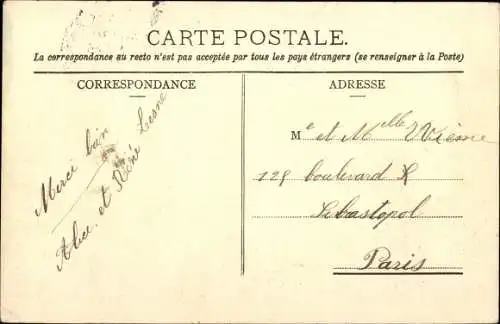 CARTE POSTALE.
La correspondance au recto n'est pas acceptée par tous les pays étrangers (se renseigner à la Poste)
CORRESPONDANCE
Merci bien
Alice et René Lesne
ADRESSE
Me et Melle Vienne
129 boulevard
Sebastopol
Paris